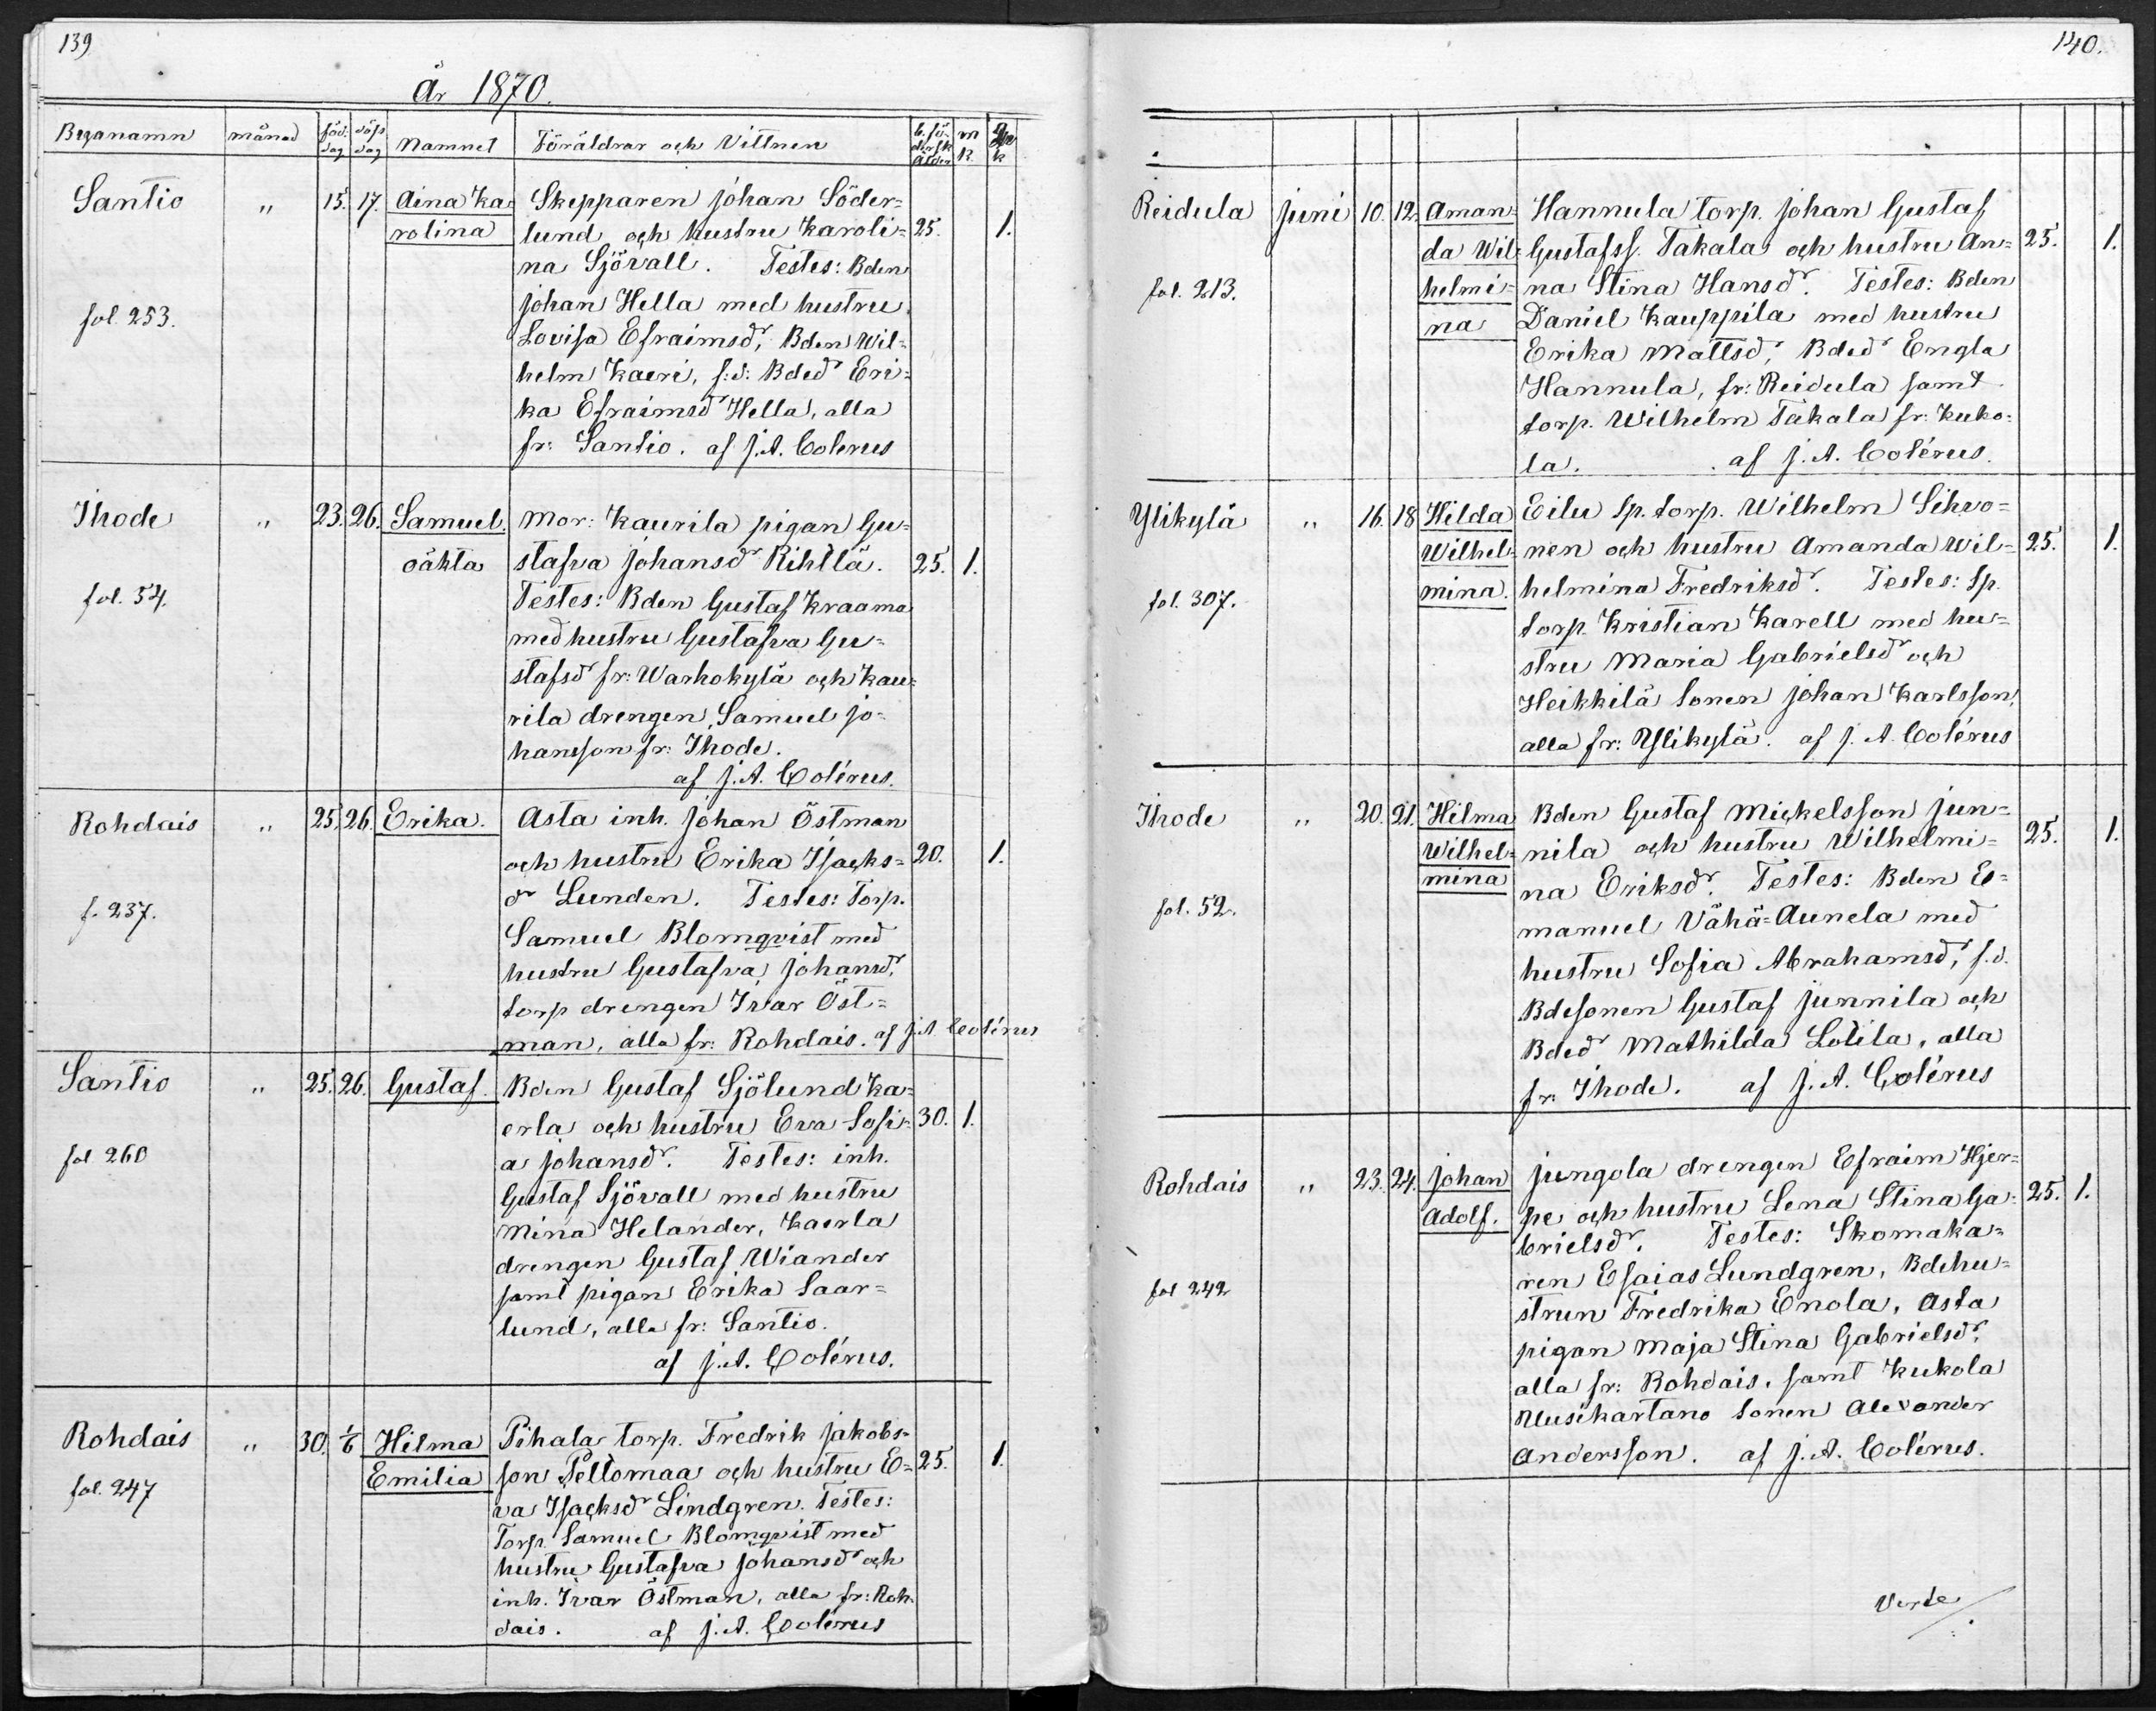 139
År 1870.
Byanamn månad föd. dag döps dag Namnet Föräldrar och Vittnen b. födersk ålder m k k
Santio " 15. 17. Aina Ka- Skepparen Johan Söder=
rolina lund och hustru Karoli= 25. 1.
na Sjövall. Testes: Bden
Johan Hella med hustru
fol. 253. Lovisa Efraimsdr, Bden Wil=
helm Kaeri, s:d: Bdedr Eri=
ka Efraimsdr Hella, alla
fr: Santio. af J.A. Colérus
Ihode " 23. 26. Samuel. Mor: Kaurila pigan Gu=
oäkta stafva Johansdr Rihtlä. 25. 1.
fol. 54. Testes: Bden Gustaf Kraama
med hustru Gustafva Gu=
stafsdr fr: Warhokylä och Kau=
rila drengen Samuel Jo=
hansson fr: Ihode.
af J.A. Colérus.
Rohdais " 25. 26 Erika. Asta inh. Johan Östman
och hustru Erika Isacks= 20. 1.
dr Lunden. Testes: Torp.
f. 237. Samuel Blomqvist med
hustru Gustafva Johansdr,
torp drengen Ivar Öst=
man, alla fr: Rohdais. af J.A Colérus
Santio " 25. 26. Gustaf. Bden Gustaf Sjölund Ka=
erla och hustru Eva Sofi= 30. 1.
fol 260 a Johansdr. Testes: inh.
Gustaf Sjövall med hustru
Mina Helander, Kaerla
drengen Gustaf Wiander
samt pigan Erika Saar=
lund, alla fr: Santio.
af J.A. Colérus.
Rohdais " 30. 1/6 Hilma Pihala torp. Fredrik Jakobs=
fol. 247 Emilia son Peltomaa och hustru E= 25. 1.
va Isacksdr Lindgren. Testes:
Torp. Samuel Blomqvist med
hustru Gustafva Johansdr och
inh. Ivar Östman, alla fr: Roh=
dais. af J.A. Colérus
140.
Reidula Juni 10. 12. Aman= Hannula torp. Johan Gustaf
da Wil= Gustafss. Takala och hustru An= 25. 1.
fol. 213. helmi= na Stina Hansdr. Testes: Bden
na Daniel Kauppila med hustru
Erika Mattsdr, Bdedr Engla
Hannula, fr: Reidula samt
torp. Wilhelm Takala fr: Kuko=
la. af J.A. Colérus.
Ylikylä " 16. 18 Hilda Eilu Sp. torp. Wilhelm Sihvo=
Wilhel= nen och hustru Amanda Wil= 25. 1.
fol. 307. mina. helmina Fredriksdr. Testes: Sp.
torp. Kristian Karell med hu=
stru Maria Gabrielsdr och
Heikkilä sonen Johan Karlsson,
alla fr: Ylikylä. af J.A. Colérus
Ihode " 20. 21. Hilma Bden Gustaf Mickelsson Jun=
Wilhel= nila och hustru Wilhelmi= 25. 1.
mina na Eriksdr. Testes: Bden E=
fol. 52. manuel Vähä=Aunela med
hustru Sofia Abrahamsdr, s.d.
Bdesonen Gustaf Junnila och
Bdedr Mathilda Lotila, alla
fr: Ihode. af J.A. Colérus
Rohdais " 23. 24. Johan Jungola drengen Efraim Hjer=
Adolf. pe och hustru Lena Stina Ga= 25. 1.
brielsdr. Testes: Skomaka=
fol 242 ren Esaias Lundgren, Bdehu=
strun Fredrika Enola, Asta
pigan Maja Stina Gabrielsdr,
alla fr: Rohdais, samt Kukola
Uusikartano sonen Alexander
Andersson. af J.A. Colérus.
Verte